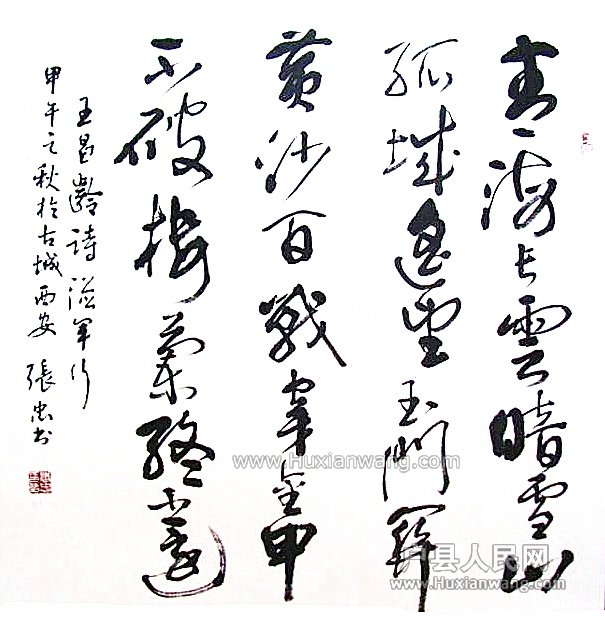 青海长雲暗雪山
孤城遥望玉门關
黄沙百戰穿金甲
不破楼蘭終不還
王昌齡詩從军行
甲午之秋於古城西安 張忠书
www.Huxianwang.com
户县人民网
www.Huxianwang.com